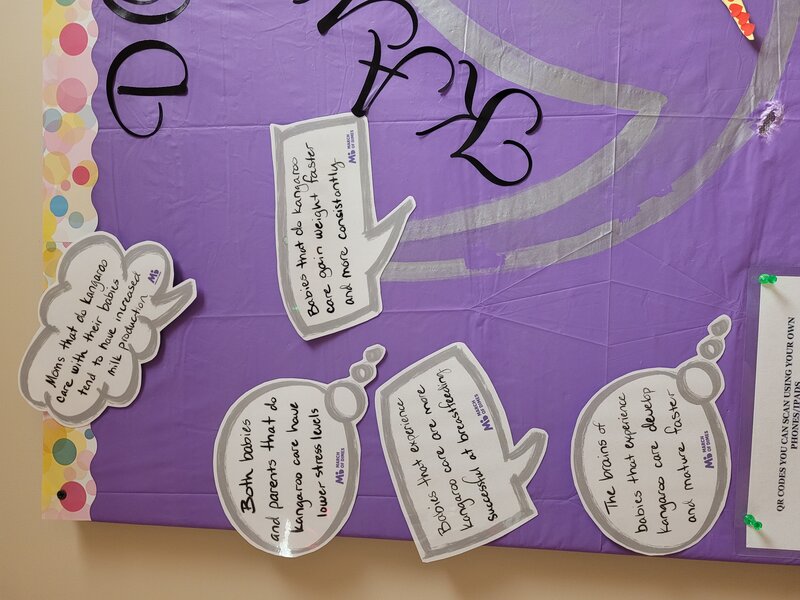 Moms that do kangaroo
care with their babies
tend to have increased
milk production
MD
DO
Both babies
and parents that do
kangaroo care have
lower stress levels
MD MARCH
OF DIMES
Babies that do kangaroo
care gain weight faster
and more consistantly
MD MARCH
OF DIMES
KAN
Babies that experience
kangaroo care are more
successful at breastfeeding
MD MARCH
OF DIMES
The brains of
babies that experience
kangaroo care develop
and mature faster
MD MARCH
OF DIMES
QR CODES YOU CAN SCAN USING YOUR OWN
PHONES/IPADS